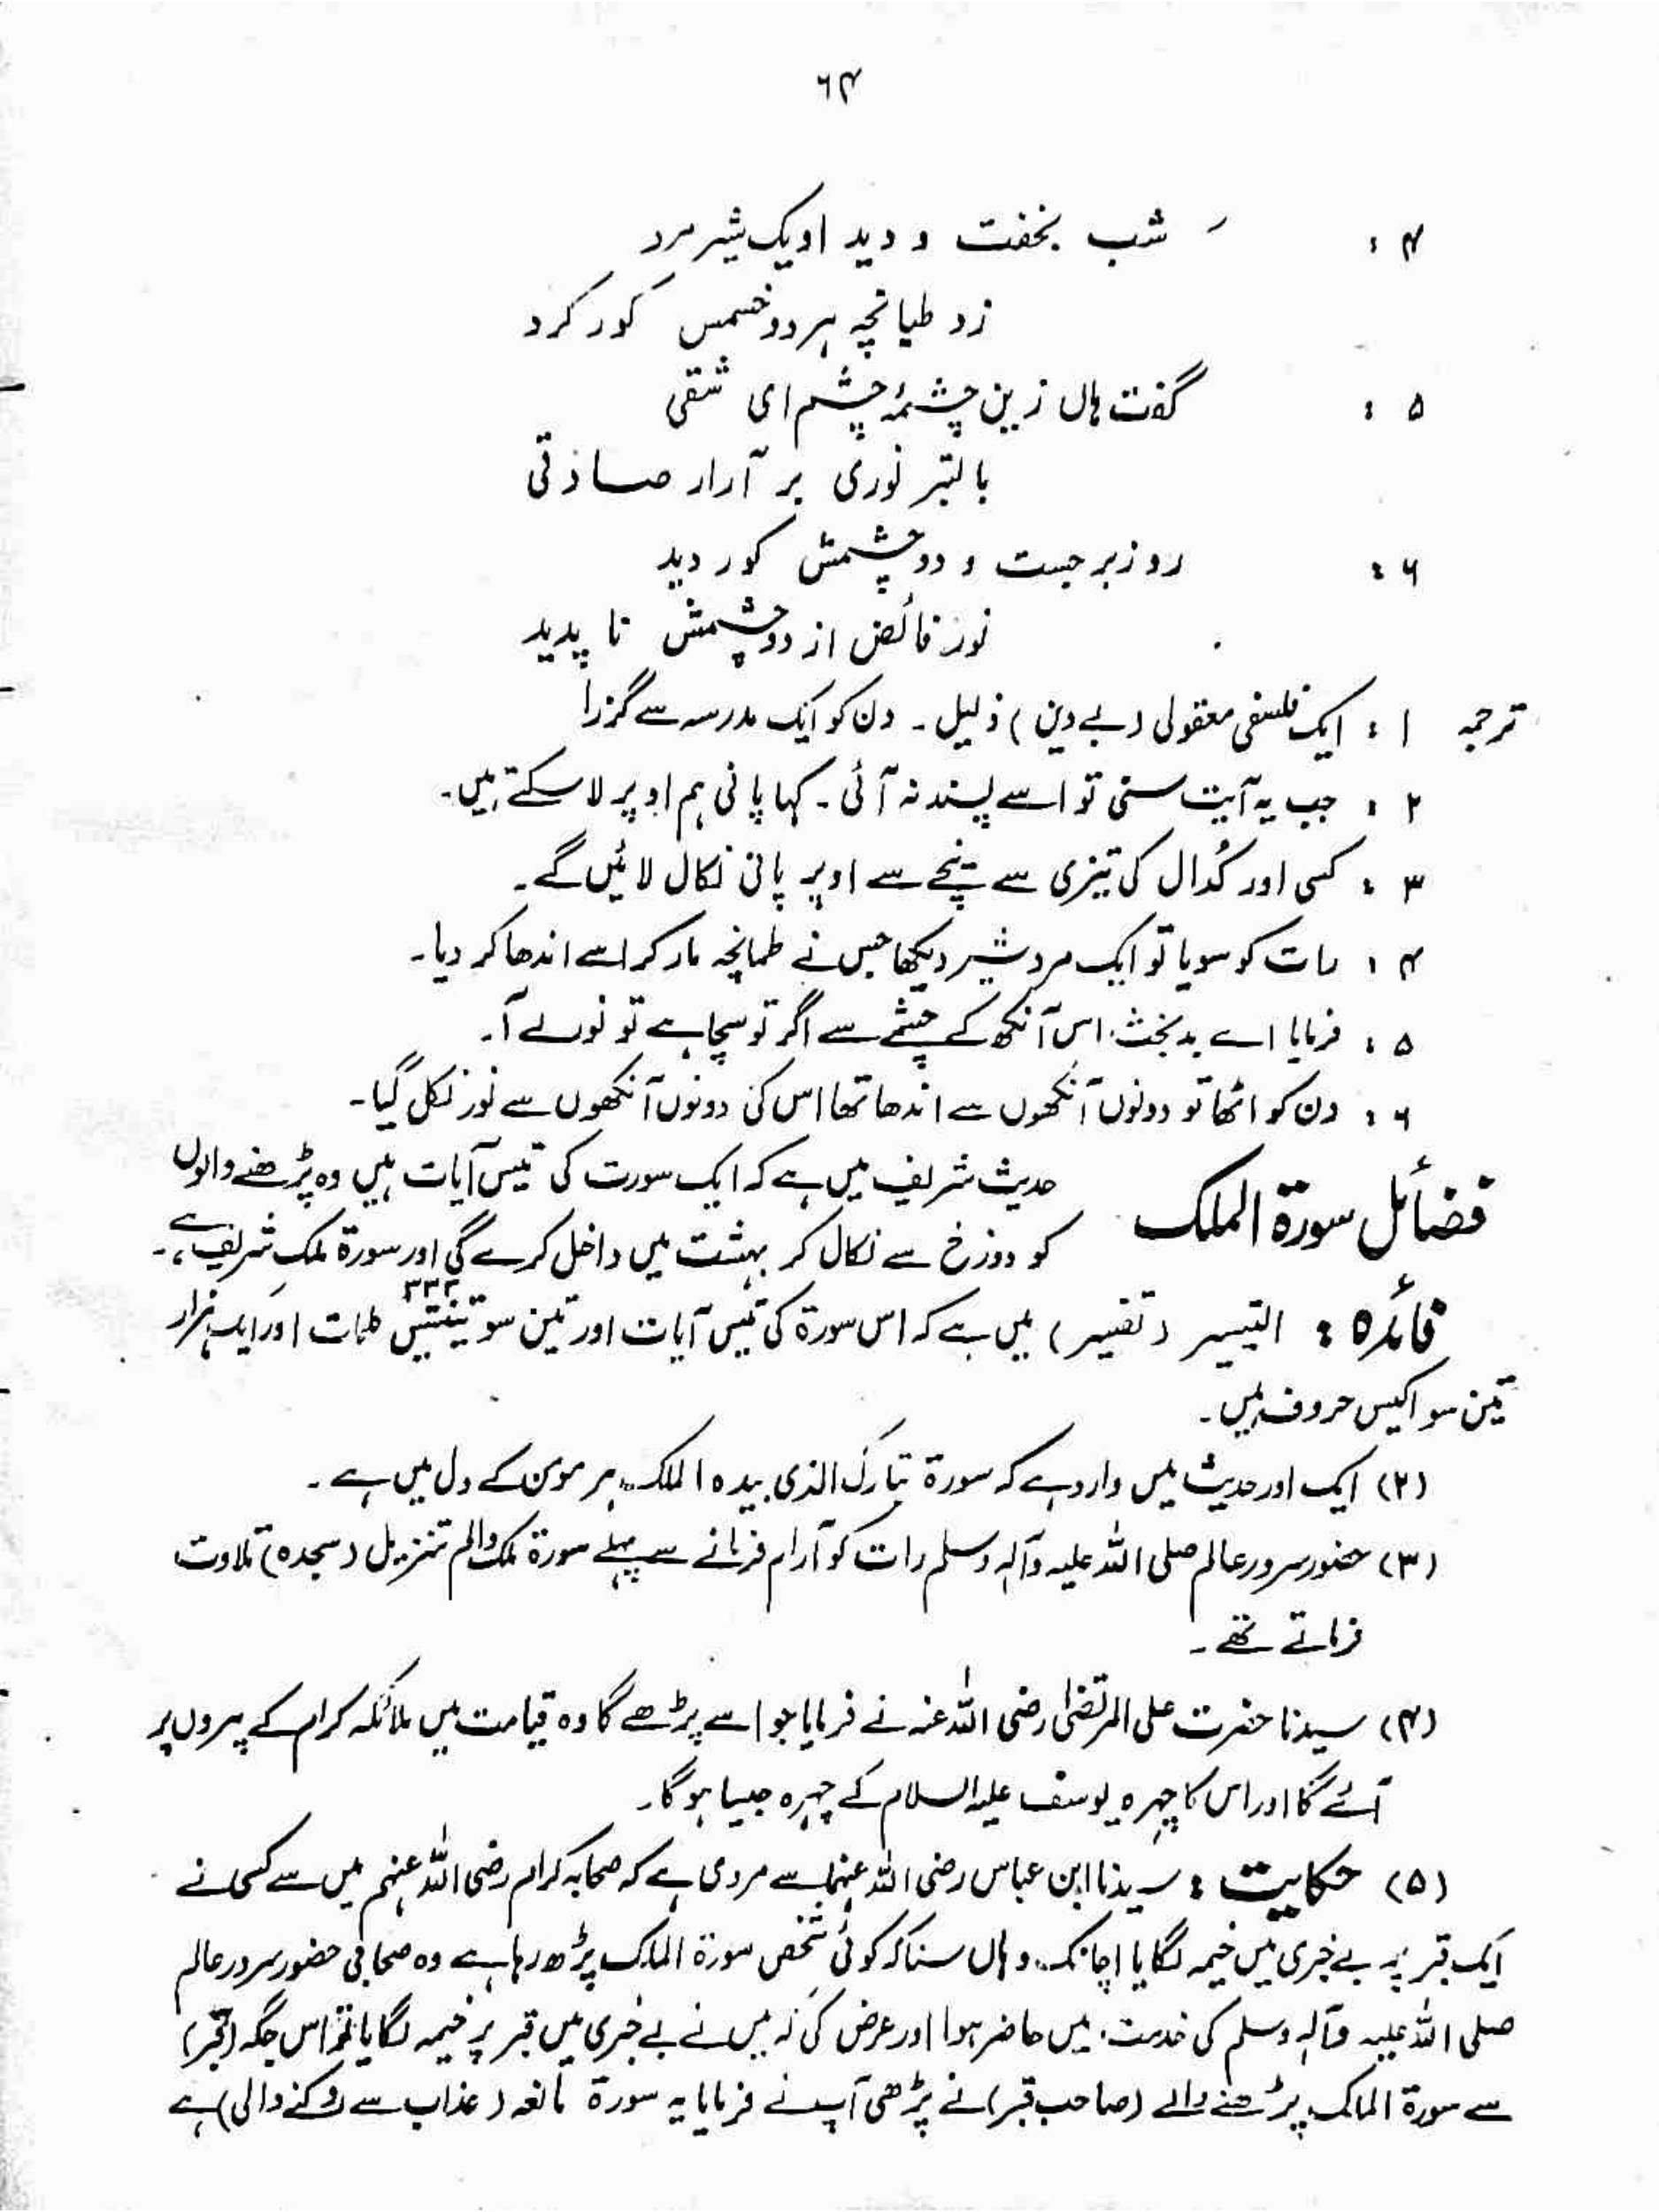 ۶۴
۴ : شب بخفت و دید او یک شیر مرد
زد طپانچہ ہر دو خسمس کور کرد
۵ : گفت ہاں زین چشمۂ چشم ای شقی
با تبر نوری بر آرار صادقی
۶ : روز بر جست و دو چشمش کور دید
نور فائض از دو چشمش نا پدید
ترجمہ ۱ : ایک فلسفی معقولی (بے دین) ذلیل ۔ دن کو ایک مدرسہ سے گزرا
۲ : جب یہ آیت سنی تو اسے پسند نہ آئی ۔ کہا پانی ہم اوپر لا سکتے ہیں ۔
۳ : کسی اور کُدال کی تیزی سے نیچے سے اوپر پانی نکال لائیں گے ۔
۴ : رات کو سویا تو ایک مرد شیر دیکھا جس نے طمانچہ مار کر اسے اندھا کر دیا ۔
۵ : فرمایا اے بدبخت اس آنکھ کے چشمے سے اگر تو سچا ہے تو نور لے آ ۔
۶ : دن کو اٹھا تو دونوں آنکھوں سے اندھا تھا اس کی دونوں آنکھوں سے نور نکل گیا ۔
فضائل سورۃ الملک حدیث شریف میں ہے کہ ایک سورت کی تیس آیات ہیں وہ پڑھنے والوں
کو دوزخ سے نکال کر بہشت میں داخل کرے گی اور سورۃ ملک شریف ہے ۔
فائدہ : التیسیر (تفسیر) میں ہے کہ اس سورۃ کی تیس آیات اور تین سو تینتیس ۳۳۳ کلمات اور ایک ہزار
تین سو اکیس حروف ہیں ۔
(۲) ایک اور حدیث میں وارد ہے کہ سورۃ تبارک الذی بیدہ الملک ہر مومن کے دل میں ہے ۔
(۳) حضور سرور عالم صلی اللہ علیہ وآلہ وسلم رات کو آرام فرمانے سے پہلے سورۃ ملک والم تنزیل (سجدہ) تلاوت
فرماتے تھے ۔
(۴) سیدنا حضرت علی المرتضیٰ رضی اللہ عنہ نے فرمایا جو اسے پڑھے گا وہ قیامت میں ملائکہ کرام کے پروں پر
آئے گا اور اس کا چہرہ یوسف علیہ السلام کے چہرہ جیسا ہو گا ۔
(۵) حکایت : سیدنا ابن عباس رضی اللہ عنہما سے مروی ہے کہ صحابہ کرام رضی اللہ عنہم میں سے کسی نے
ایک قبر پر بے خبری میں خیمہ لگایا اچانک وہاں سنا کہ کوئی شخص سورۃ الملک پڑھ رہا ہے وہ صحابی حضور سرور عالم
صلی اللہ علیہ وآلہ وسلم کی خدمت میں حاضر ہوا اور عرض کی کہ میں نے بے خبری میں قبر پر خیمہ لگایا تو اس جگہ (قبر)
سے سورۃ الملک پڑھنے والے (صاحب قبر) نے پڑھی آپ نے فرمایا یہ سورۃ مانعہ (عذاب سے روکنے والی) ہے